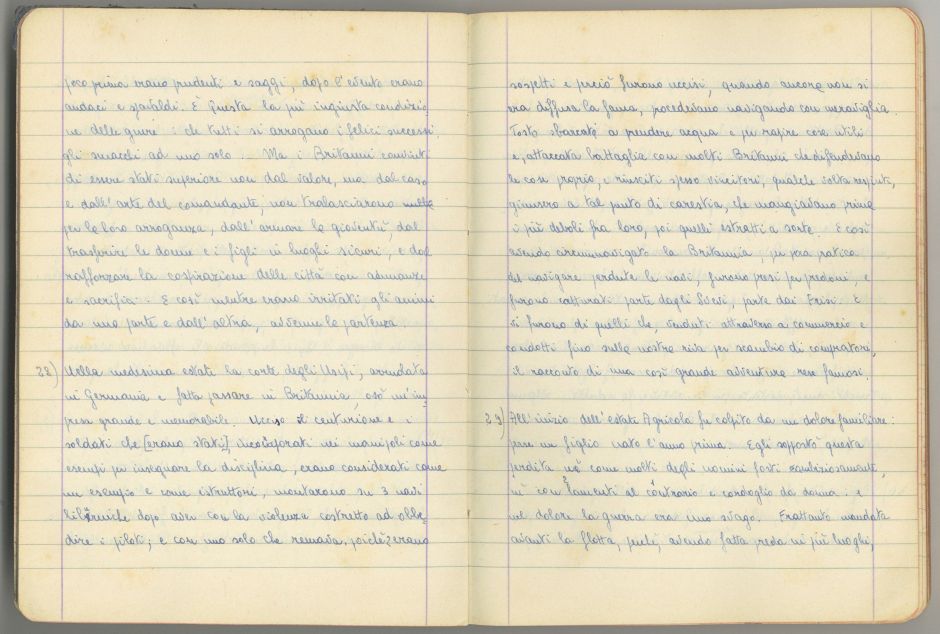 poco prima erano prudenti e saggi, dopo l'evento erano
audaci e spavaldi. È questa la più ingiusta condizio
ne delle guerre: che tutti si arrogano i felici successi,
gli smacchi ad uno solo. Ma i Britanni convinti
di essere stati superiore non dal valore, ma dal caso
e dall'arte del comandante, non tralasciarono nulla
per la loro arroganza, dall'armare la gioventù dal
trasferire le donne e i figli in luoghi sicuri, e dal
rafforzare la cospirazione delle città con adunanze
e sacrifici. E così mentre erano irritati gli animi
da una parte e dall'altra, avvenne la partenza.
28) Nella medesima estate la corte degli Usipi, arruolata
in Germania e fatta passare in Britannia, osò un'im
presa grande e memorabile. Ucciso il centurione e i
soldati che [erano stati] incorporati nei manipoli come
esempi per insegnare la disciplina, erano considerati come
un esempio e come istruttori, montarono su 3 navi
liburniche dopo aver con la violenza costretto ad obbe
dire i piloti; e con uno solo che remava, poiché 2 erano
sospetti e perciò furono uccisi, quando ancora non si
era diffusa la fama, procedevano navigando con meraviglia.
Tosto sbarcati a prendere acqua e per rapire cose utili
e, attaccata battaglia con molti Britanni che difendevano
le cose proprie, e riusciti spesso vincitori, qualche volta respinti,
giunsero a tal punto di carestia, che mangiavano prima
i più deboli fra loro, poi quelli estratti a sorte. E così
avendo circumnavigato la Britannia, per poca pratica
del navigare perdute le navi, furono presi per predoni, e
furono catturati parte dagli Suevi, parte dai Frisi. E
vi furono di quelli che, venduti attraverso ai commercio e
condotti fino sulla nostra riva per scambio di compratori,
il racconto di una così grande avventura rese famosi.
29) All'inizio dell'estate Agricola fu colpito da un dolore familiare:
perse un figlio nato l'anno prima. Egli sopportò questa
perdita né come molti degli uomini forti ambiziosamente,
né con lamenti al contrario e cordoglio da donna: e
nel dolore la guerra era uno svago. Frattanto mandata
avanti la flotta, perché, avendo fatta preda in più luoghi,